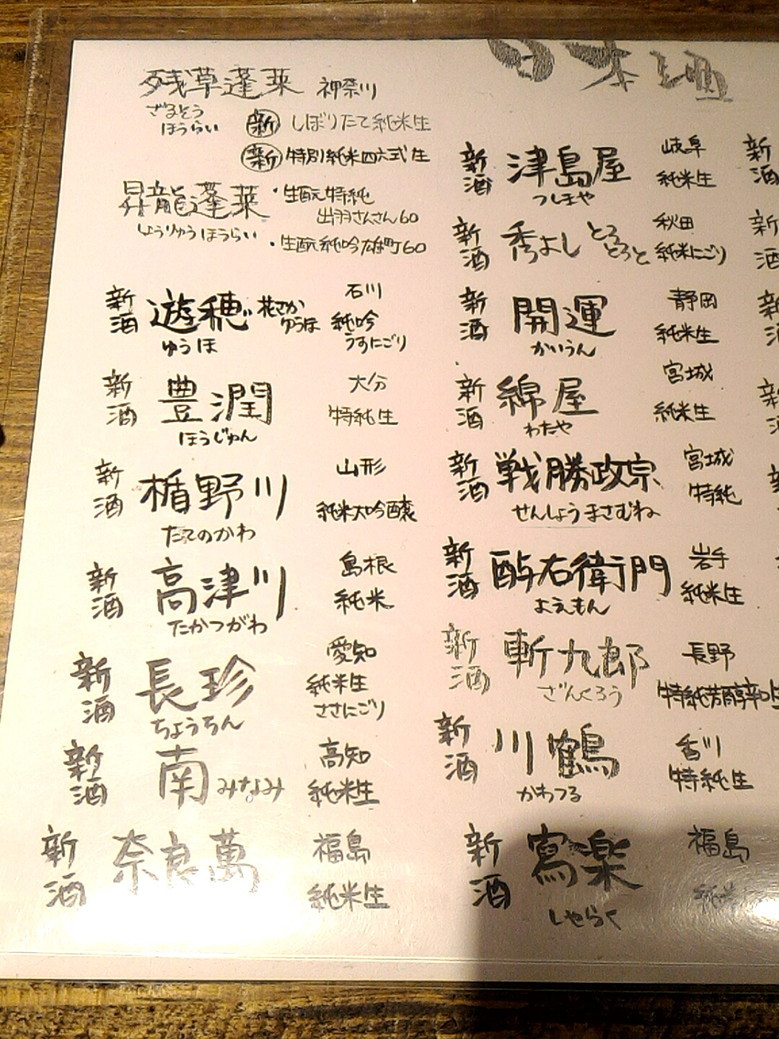 日本酒
残草蓬莱 神奈川
ざるそう
ほうらい
新 しぼりたて純米生
新 特別純米四六式生
昇龍蓬莱 ・生酛特純
出羽さんさん60
しょうりゅうほうらい ・生酛純吟雄町60
新酒 遊穂 花さかゆうほ 石川
ゆうほ 純吟
うすにごり
新酒 豊潤 大分
ほうじゅん 特純生
新酒 楯野川 山形
たてのかわ 純米大吟醸
新酒 高津川 島根
たかつがわ 純米
新酒 長珍 愛知
ちょうちん 純米生
ささにごり
新酒 南 みなみ 高知
純米生
新酒 奈良萬 福島
純米生
新酒 津島屋 岐阜
つしまや 純米生
新酒 秀よし とろとろっと 秋田
純米にごり
新酒 開運 静岡
かいうん 純米生
新酒 綿屋 宮城
わたや 純米生
新酒 戦勝政宗 宮城
せんしょうまさむね 特純
新酒 酉与右衛門 岩手
よえもん 純米生
新酒 斬九郎 長野
ざんくろう 特純芳醇辛口
新酒 川鶴 香川
かわつる 特純生
新酒 寫楽 福島
しゃらく 純米
新
新酒
新